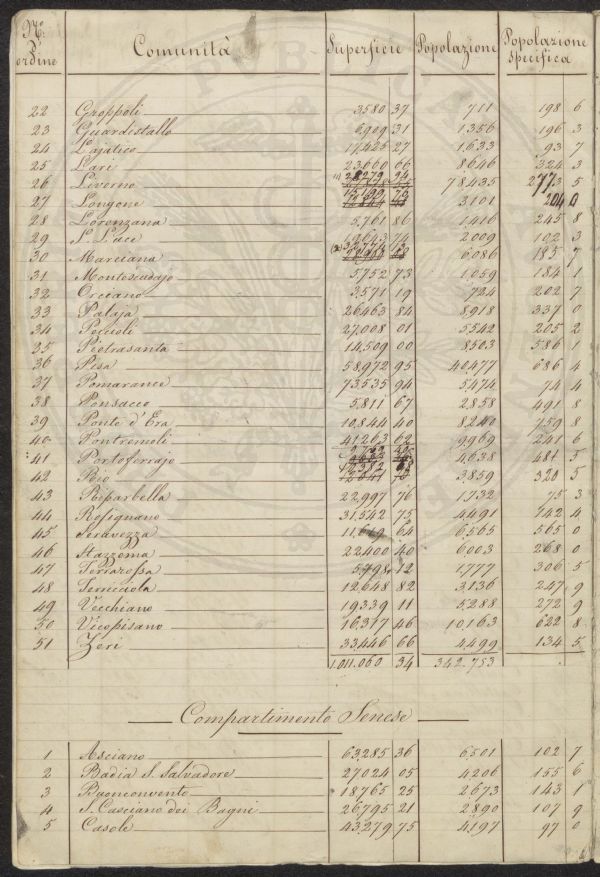 N.º d'ordine Comunità Superficie Popolazione Popolazione specifica
22 Groppoli 3580 37 711 198 6
23 Guardistallo 6909 31 1356 196 3
24 Lajatico 17,425 27 1633 93 7
25 Lari 23,660 66 8646 324 3
26 Livorno 28279 94 78,435 2773 5
27 Longone 3101 204 0
28 Lorenzana 5,761 86 1416 245 8
29 S. Luce 19643 74 2009 102 3
30 Marciana 6086 185 7
31 Montescudajo 5,752 73 1059 184 1
32 Orciano 3,571 19 724 202 7
33 Palaja 26463 84 8,918 337 0
34 Peccioli 27,008 01 5542 205 2
35 Pietrasanta 14,509 00 8,503 586 1
36 Pisa 58,972 95 40477 686 4
37 Pomarance 73535 94 5,474 74 4
38 Ponsacco 5,811 67 2858 491 8
39 Ponte d'Era 10,844 40 8240 759 8
40 Pontremoli 41263 62 9,969 241 6
41 Portoferrajo 4638 481 5
42 Rio 3859 320 5
43 Riparbella 22,997 76 1732 75 3
44 Rosignano 31,542 75 4491 142 4
45 Seravezza 11,619 64 6,565 565 0
46 Stazzema 22400 40 6003 268 0
47 Terrarossa 5,798 12 1,777 306 5
48 Terricciola 12,648 82 3,136 247 9
49 Vecchiano 19339 11 5,288 272 9
50 Vicopisano 16317 46 10163 622 8
51 Zeri 33,446 66 4,499 134 5
1,011,060 34 342,753
Compartimento Senese
1 Asciano 63,285 36 6501 102 7
2 Badia S. Salvadore 27024 05 4206 155 6
3 Buonconvento 18765 25 2673 143 1
4 S. Casciano dei Bagni 26,795 21 2890 107 9
5 Casole 43,279 75 4197 97 0